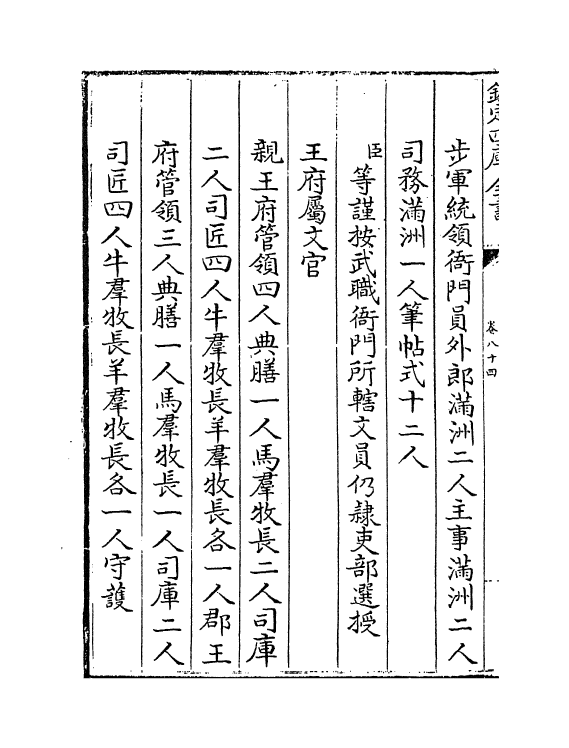 欽定四庫全書
卷八十四
步軍統領衙門員外郎滿洲二人主事滿洲二人
司務滿洲一人筆帖式十二人
臣等謹按武職衙門所轄文員仍隷吏部選授
王府屬文官
親王府管領四人典膳一人馬羣牧長二人司庫
二人司匠四人牛羣牧長羊羣牧長各一人郡王
府管領三人典膳一人馬羣牧長一人司庫二人
司匠四人牛羣牧長羊羣牧長各一人守䕶